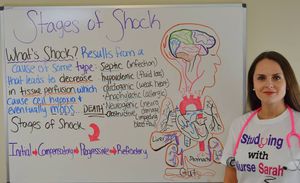 Stages of Shock
What's Shock? Results from a
cause of some type
that leads to decrease
in tissue perfusion which
cause cell hypoxia +
eventually MODS... DEATH
Septic (infection)
hypovolemic (fluid loss)
cardiogenic (weak heart)
Anaphylactic (allergic)
Neurogenic (neuro damage)
Obstructive (impeding
blood flow)
Stages of Shock
Initial → Compensatory → Progressive → Refractory
Liver
Stomach
Guts
Studying
with
Nurse Sarah